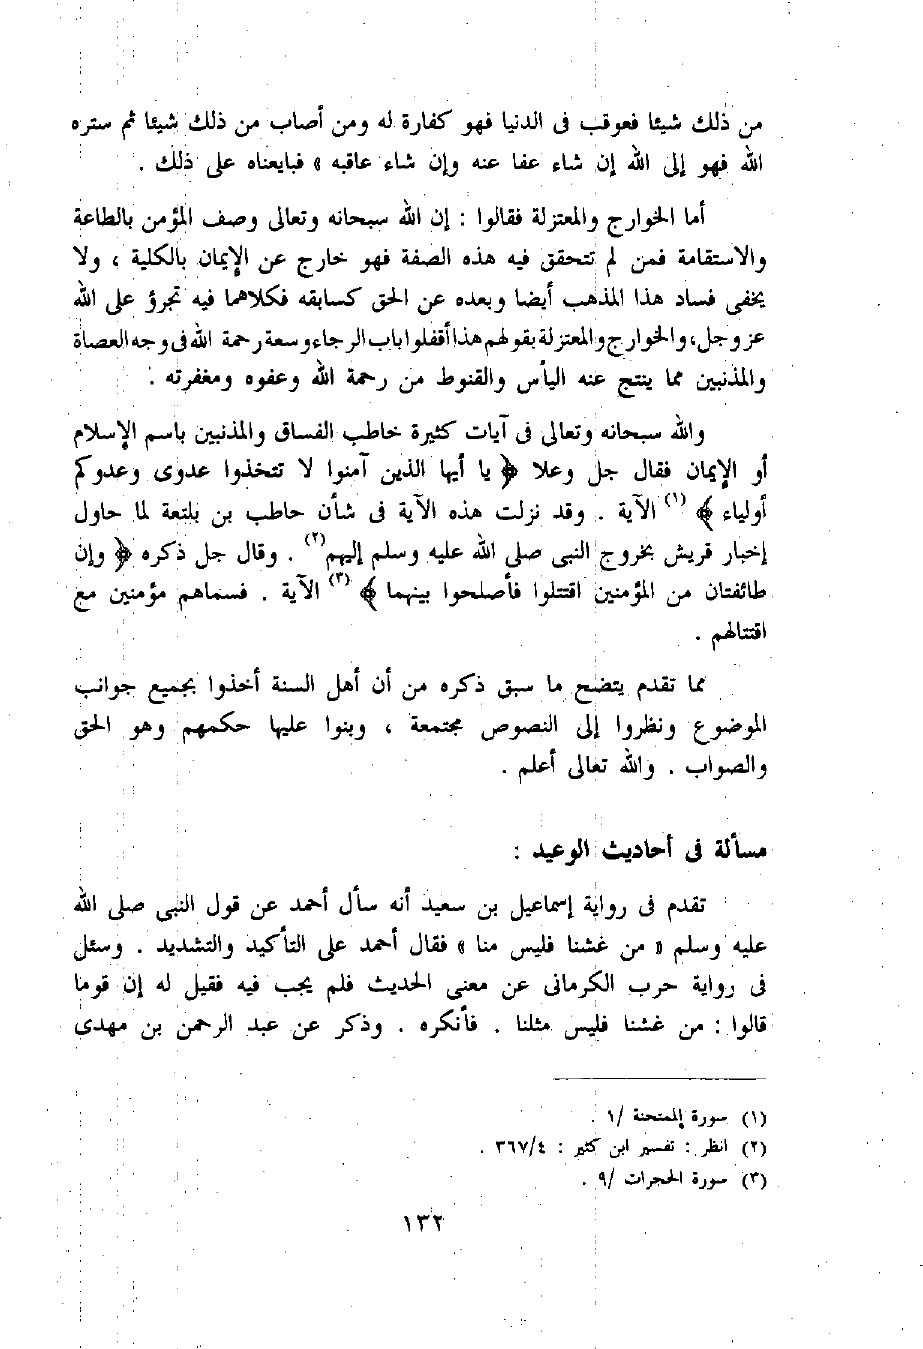 من ذلك شيئا فعوقب فى الدنيا فهو كفارة له ومن أصاب من ذلك شيئا ثم ستره
الله فهو إلى الله إن شاء عفا عنه وإن شاء عاقبه » فبايعناه على ذلك .
أما الخوارج والمعتزلة فقالوا : إن الله سبحانه وتعالى وصف المؤمن بالطاعة
والاستقامة فمن لم تتحقق فيه هذه الصفة فهو خارج عن الإيمان بالكلية ، ولا
يخفى فساد هذا المذهب أيضا وبعده عن الحق كسابقه فكلاهما فيه تجرؤ على الله
عز وجل، والخوارج والمعتزلة بقولهم هذا أقفلوا باب الرجاء وسعة رحمة الله فى وجه العصاة
والمذنبين مما ينتج عنه اليأس والقنوط من رحمة الله وعفوه ومغفرته .
والله سبحانه وتعالى فى آيات كثيرة خاطب الفساق والمذنبين باسم الإسلام
أو الإيمان فقال جل وعلا ﴿ يا أيها الذين آمنوا لا تتخذوا عدوى وعدوكم
أولياء ﴾ (١) الآية . وقد نزلت هذه الآية فى شأن حاطب بن بلتعة لما حاول
إخبار قريش بخروج النبى صلى الله عليه وسلم إليهم(٢) . وقال جل ذكره ﴿ وإن
طائفتان من المؤمنين اقتتلوا فأصلحوا بينهما ﴾ (٣) الآية . فسماهم مؤمنين مع
اقتتالهم .
مما تقدم يتضح ما سبق ذكره من أن أهل السنة أخذوا بجميع جوانب
الموضوع ونظروا إلى النصوص مجتمعة ، وبنوا عليها حكمهم وهو الحق
والصواب . والله تعالى أعلم .
مسألة فى أحاديث الوعيد :
تقدم فى رواية إسماعيل بن سعيد أنه سأل أحمد عن قول النبى صلى الله
عليه وسلم « من غشنا فليس منا » فقال أحمد على التأكيد والتشديد . وسئل
فى رواية حرب الكرمانى عن معنى الحديث فلم يجب فيه فقيل له إن قوما
قالوا : من غشنا فليس مثلنا . فأنكره . وذكر عن عبد الرحمن بن مهدى
(١) سورة الممتحنة /١ .
(٢) انظر : تفسير ابن كثير : ٣٦٧/٤ .
(٣) سورة الحجرات /٩ .
١٣٢